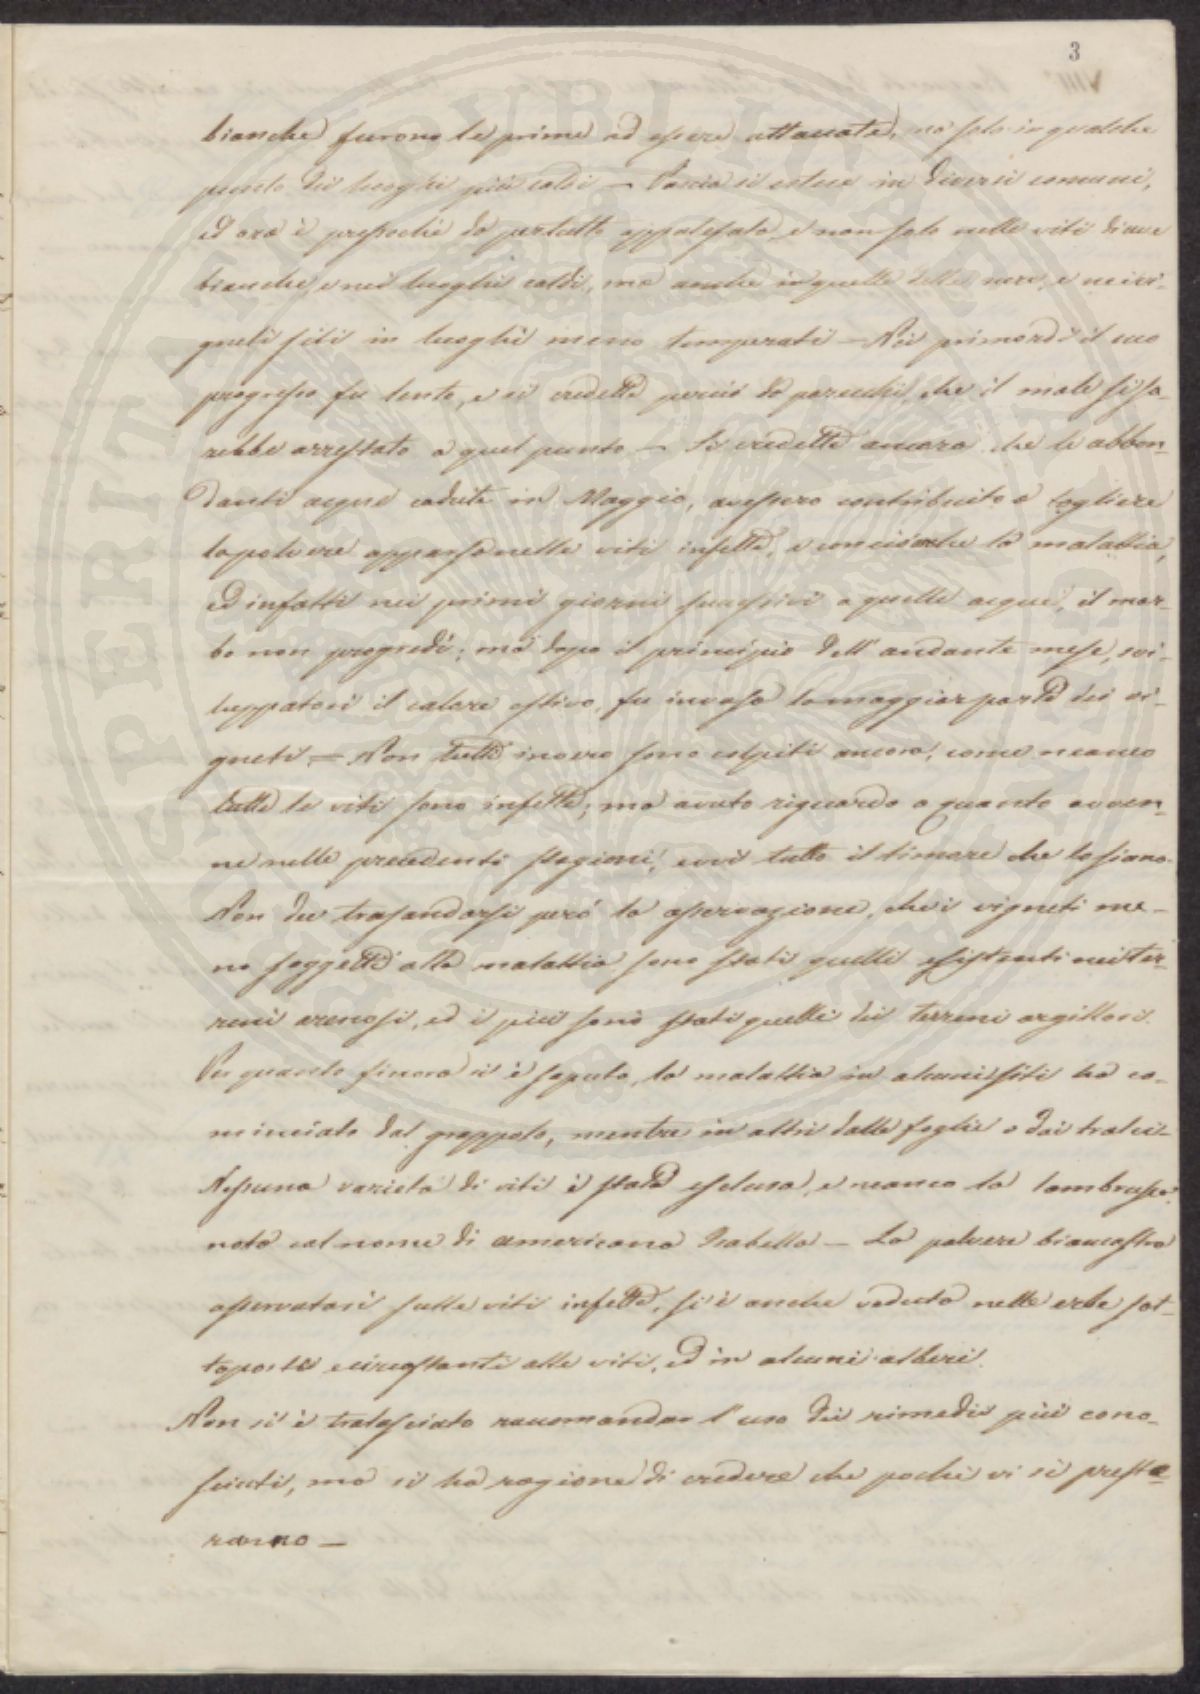 3
bianche furono le prime ad essere attaccate, ma solo in qualche
punto dei luoghi più caldi — Poscia si estese in diversi comuni,
ed ora è pressochè da pertutto appalesato, e non solo nelle viti di uve
bianche, e nei luoghi caldi, ma anche in quelle delle nere, e nei vi-
gneti siti in luoghi meno temperati — Nei primordi il suo
progresso fu lento, e si credette perciò da parecchi che il male si sa-
rebbe arrestato a quel punto — Si credette ancora che le abbon-
danti acque cadute in Maggio, avessero contribuito a togliere
la polvere apparsa nelle viti infette, e con ciò anche la malattia,
ed infatti nei primi giorni successivi a quelle acque, il mor-
bo non progredì; ma dopo il principio dell'andante mese, svi-
luppatosi il calore estivo, fu invasa la maggior parte dei vi-
gneti — Non tutti invero sono colpiti ancora, come neanco
tutte le viti sono infette; ma avuto riguardo a quanto avven-
ne nelle precedenti stagioni, evvi tutto il timore che lo siano.
Non dee trasandarsi però la osservazione, che i vigneti me-
no soggetti alla malattia sono stati quelli esistenti nei ter-
reni arenosi, ed i più sono stati quelli dei terreni argillosi.
Per quanto finora si è saputo, la malattia in alcuni siti ha co-
minciato dal grappolo, mentre in altri dalle foglie o dai tralci —
Nessuna varietà di viti è stata esclusa, e neanco la lambrusca
nota col nome di americana Isabella — La polvere biancastra
osservatasi sulle viti infette, si è anche veduta nelle erbe sot-
toposte e circostanti alle viti, ed in alcuni alberi.
Non si è tralasciato raccomandar l'uso dei rimedii più cono-
sciuti, ma si ha ragione di credere che pochi vi si preste-
ranno —